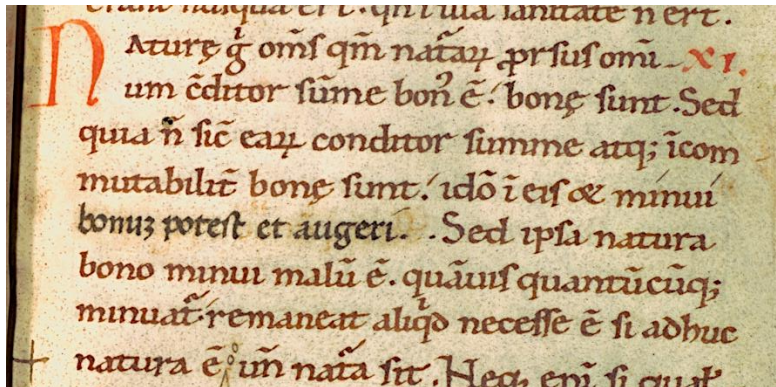 erunt nusquam er̃ t. qñ illa sanitate ñ ert.
Naturę g̊ om̃s qm̃ naturaꝝ ꝓrsus omi- XI.
um c̃ditor sũme bonꝰ ẽ. bonę sunt. Sed
quia ñ sic̃ eaꝝ conditor summe atq; ĩcom
mutabilit̃ bonę sunt. idõ ĩ eis & minui
bonuꝫ potest et augeri. . Sed ipsa natura
bono minui malũ ẽ. quãuis quantũcũq;
minuat᷑. remaneat aliqͥd necesse ẽ si adhuc
natura ẽ uñ nat̃a sit. Neq; eni᷑ si qual̃